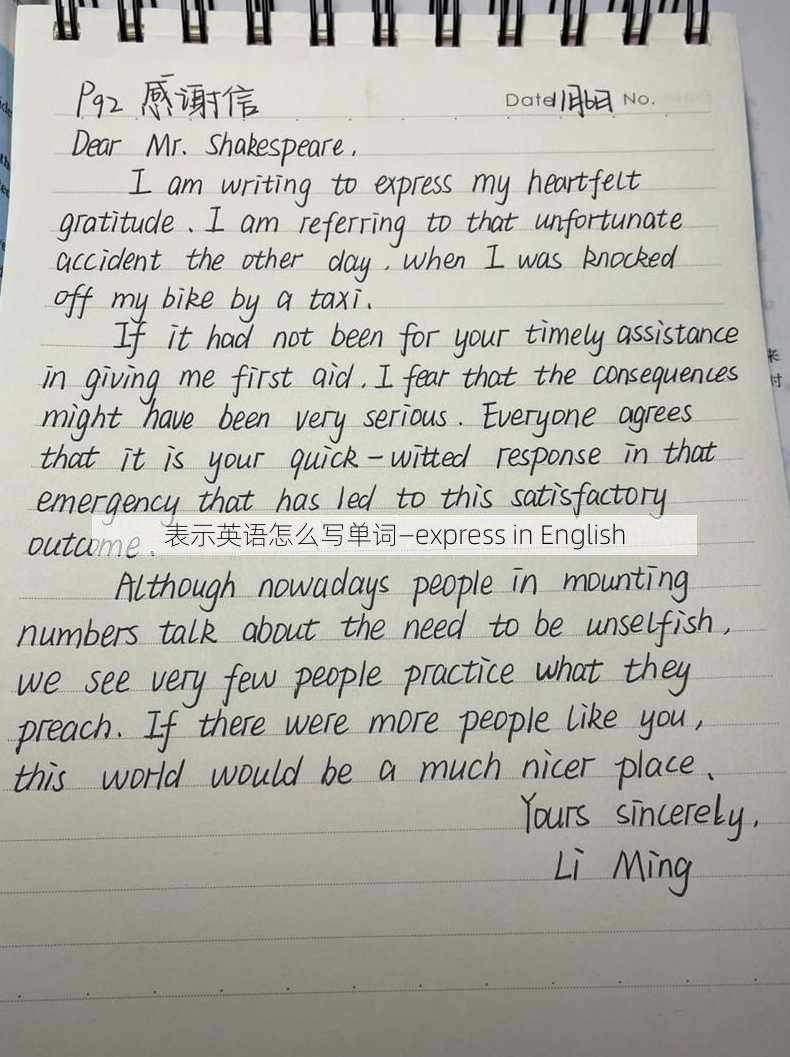 P92 感谢信
Date 1月6日 No.
Dear Mr. Shakespeare,
I am writing to express my heartfelt
gratitude. I am referring to that unfortunate
accident the other day, when I was knocked
off my bike by a taxi.
If it had not been for your timely assistance
in giving me first aid, I fear that the consequences
might have been very serious. Everyone agrees
that it is your quick-witted response in that
emergency that has led to this satisfactory
outcome.
表示英语怎么写单词—express in English
Although nowadays people in mounting
numbers talk about the need to be unselfish,
we see very few people practice what they
preach. If there were more people like you,
this world would be a much nicer place.
Yours sincerely,
Li Ming